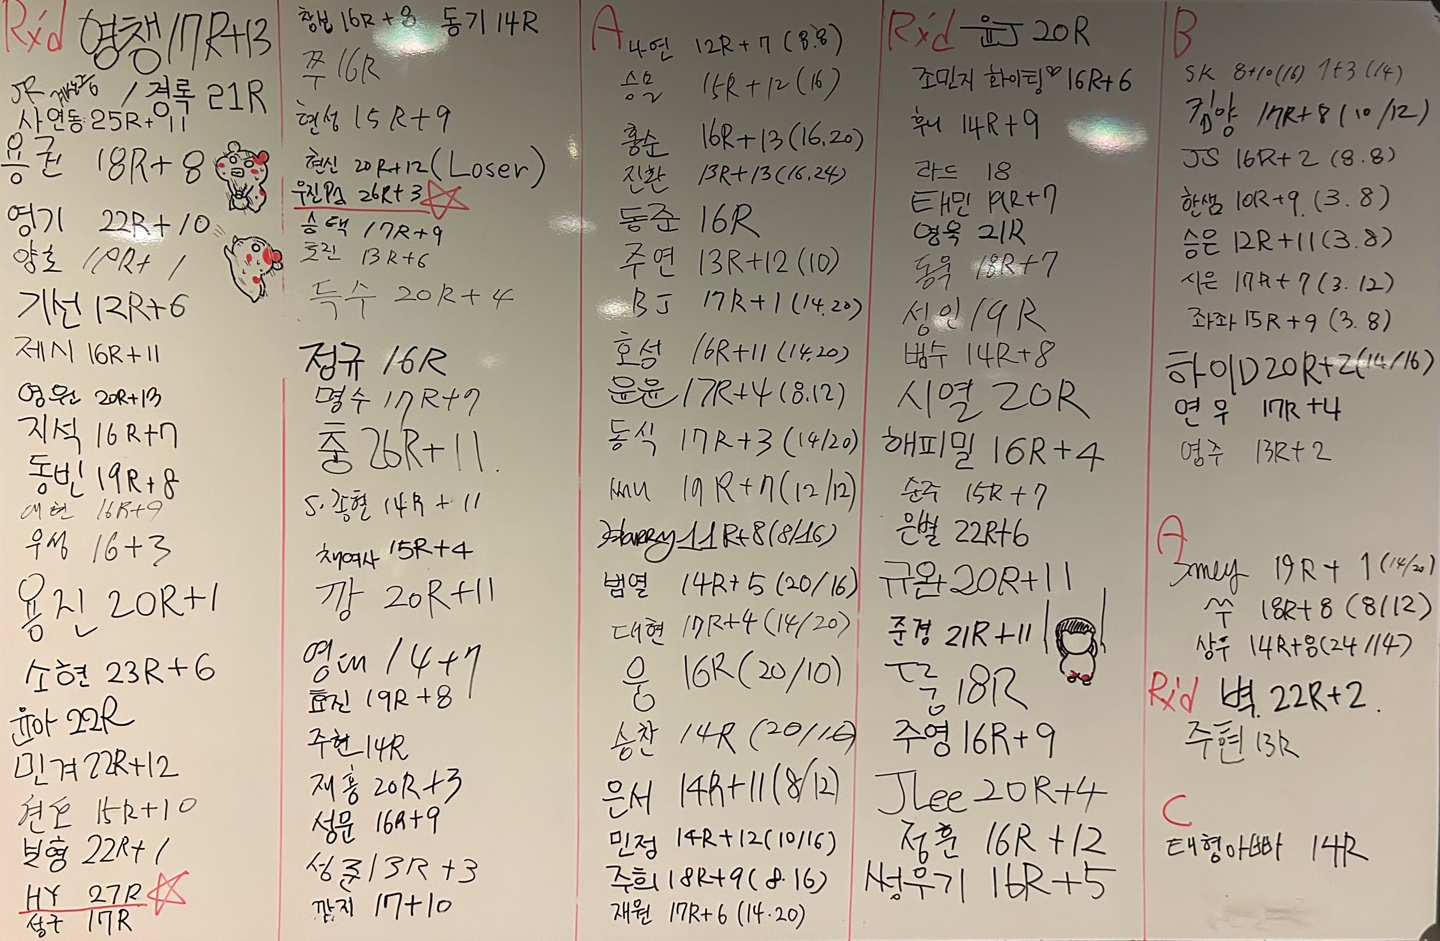 Rx'd 영챙 17R+13
JR / 경록 21R
사연동 25R+11
용균 18R+8
영기 22R+10
양호 19R+1
기선 12R+6
제시 16R+11
영원 20R+13
지석 16R+7
동빈 19R+8
대현 16R+9
우성 16+3
용진 20R+1
소현 23R+6
윤아 22R
민겨 22R+12
현호 15R+10
보형 22R+1
HY 27R
성구 17R
창보 16R+8 동기 14R
쭈 16R
현성 15R+9
현신 20R+12 (Loser)
우진PA 26R+3
승택 17R+9
효진 13R+6
득수 20R+4
정규 16R
명수 17R+7
춤 26R+11.
S.종혈 14R+11
채여사 15R+4
깡 20R+11
영대 14+7
효진 19R+8
주현 14R
재흥 20R+3
성문 16R+9
성준 13R+3
깜지 17+10
A
나연 12R+7 (8.8)
승모 15R+12 (16)
홍순 16R+13 (16.20)
진환 13R+13 (16.24)
동준 16R
주연 13R+12 (10)
BJ 17R+1 (14.20)
호성 16R+11 (14.20)
윤윤 17R+4 (8.12)
동식 17R+3 (14/20)
써니 19R+7 (12/12)
Harry 11R+8 (8/16)
범열 14R+5 (20/16)
대현 17R+4 (14/20)
웅 16R (20/10)
승찬 14R (20/16)
은서 14R+11 (8/12)
민정 14R+12 (10/16)
주희 18R+9 (8.16)
재원 17R+6 (14.20)
Rx'd 윤J 20R
조민지 화이팅♡ 16R+6
후니 14R+9
라드 18
태민 19R+7
영욱 21R
동욱 18R+7
성인 19R
범수 14R+8
시열 20R
해피밀 16R+4
순주 15R+7
은별 22R+6
규완 20R+11
준경 21R+11
18R
주영 16R+9
JLee 20R+4
정훈 16R+12
썽우기 16R+5
B
SK 8+10 (16) 7+3 (14)
김양 17R+8 (10/12)
JS 16R+2 (8.8)
한샘 10R+9. (3.8)
승은 12R+11 (3.8)
시은 17R+7 (3.12)
좌좌 15R+9 (3.8)
하이D 20R+2 (14/16)
연우 17R+4
영주 13R+2
A
19R+1 (14/20)
쑤 18R+8 (8/12)
상우 14R+8 (24/14)
Rx'd 벽. 22R+2.
주현 13R
C
태형아빠 14R